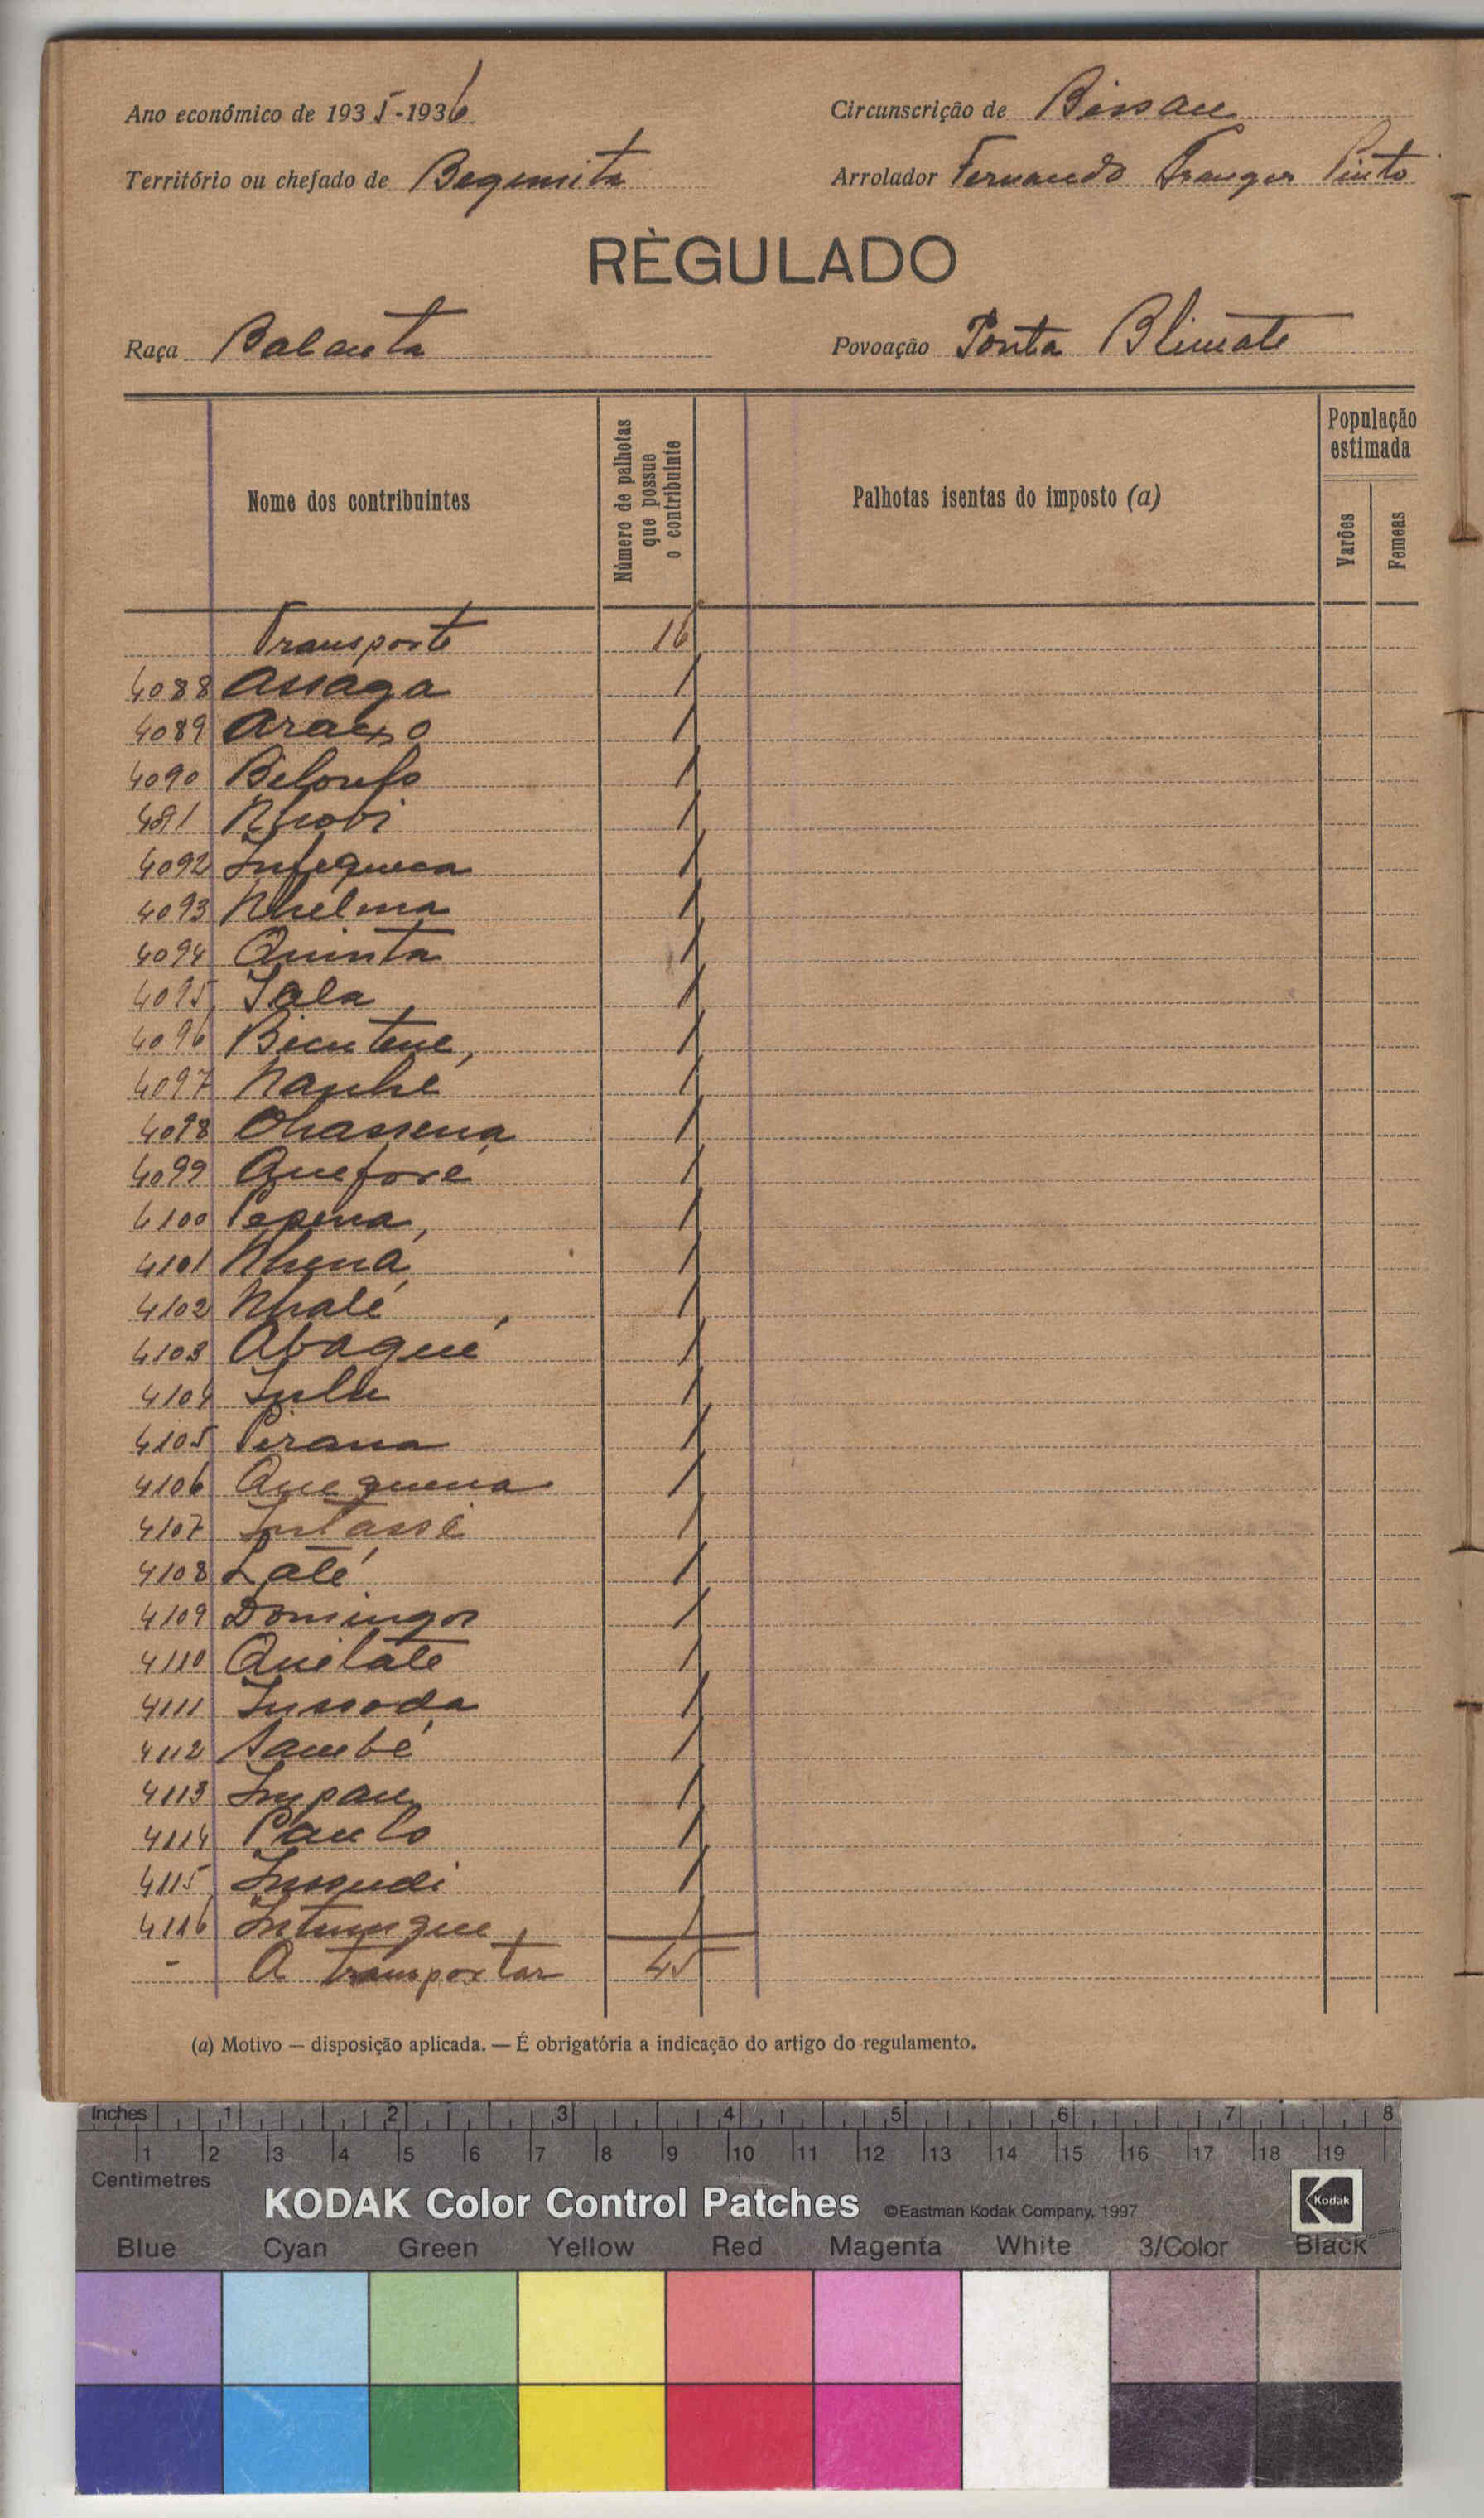 Ano económico de 1935-1936
Circunscrição de Bissau
Território ou chefado de Begemita
Arrolador Fernando Pinto
RÈGULADO
Raça Balanta
Povoação Ponta Blimate
Nome dos contribuintes
Número de palhotas que possue o contribuinte
Palhotas isentas do imposto (a)
População estimada
Varões
Femeas
Transporte 16
4088 Assaga 1
4089 1
4090 Beloufo 1
4091 Nhobi 1
4092 Infequeca 1
4093 Nhelma 1
4094 Quinta 1
4095 Jala 1
4096 Bicutene, 1
4097 Nanhé 1
4098 Ohassena 1
4099 Queforé 1
4100 Pepena, 1
4101 Nhená 1
4102 Nhalé 1
4103 Abagué 1
4104 Julu 1
4105 Perana 1
4106 Quequena 1
4107 Intassé 1
4108 Laté 1
4109 Domingos 1
4110 Quilate 1
4111 Inssoda 1
4112 Sambé 1
4113 Impau 1
4114 Paulo 1
4115 Inssudi 1
4116 Intungue 1
- A transportar 45
(a) Motivo — disposição aplicada. — É obrigatória a indicação do artigo do regulamento.
Inches 1 2 3 4 5 6 7 8
1 2 3 4 5 6 7 8 9 10 11 12 13 14 15 16 17 18 19
Centimetres
KODAK Color Control Patches ©Eastman Kodak Company, 1997 Kodak
Blue Cyan Green Yellow Red Magenta White 3/Color Black